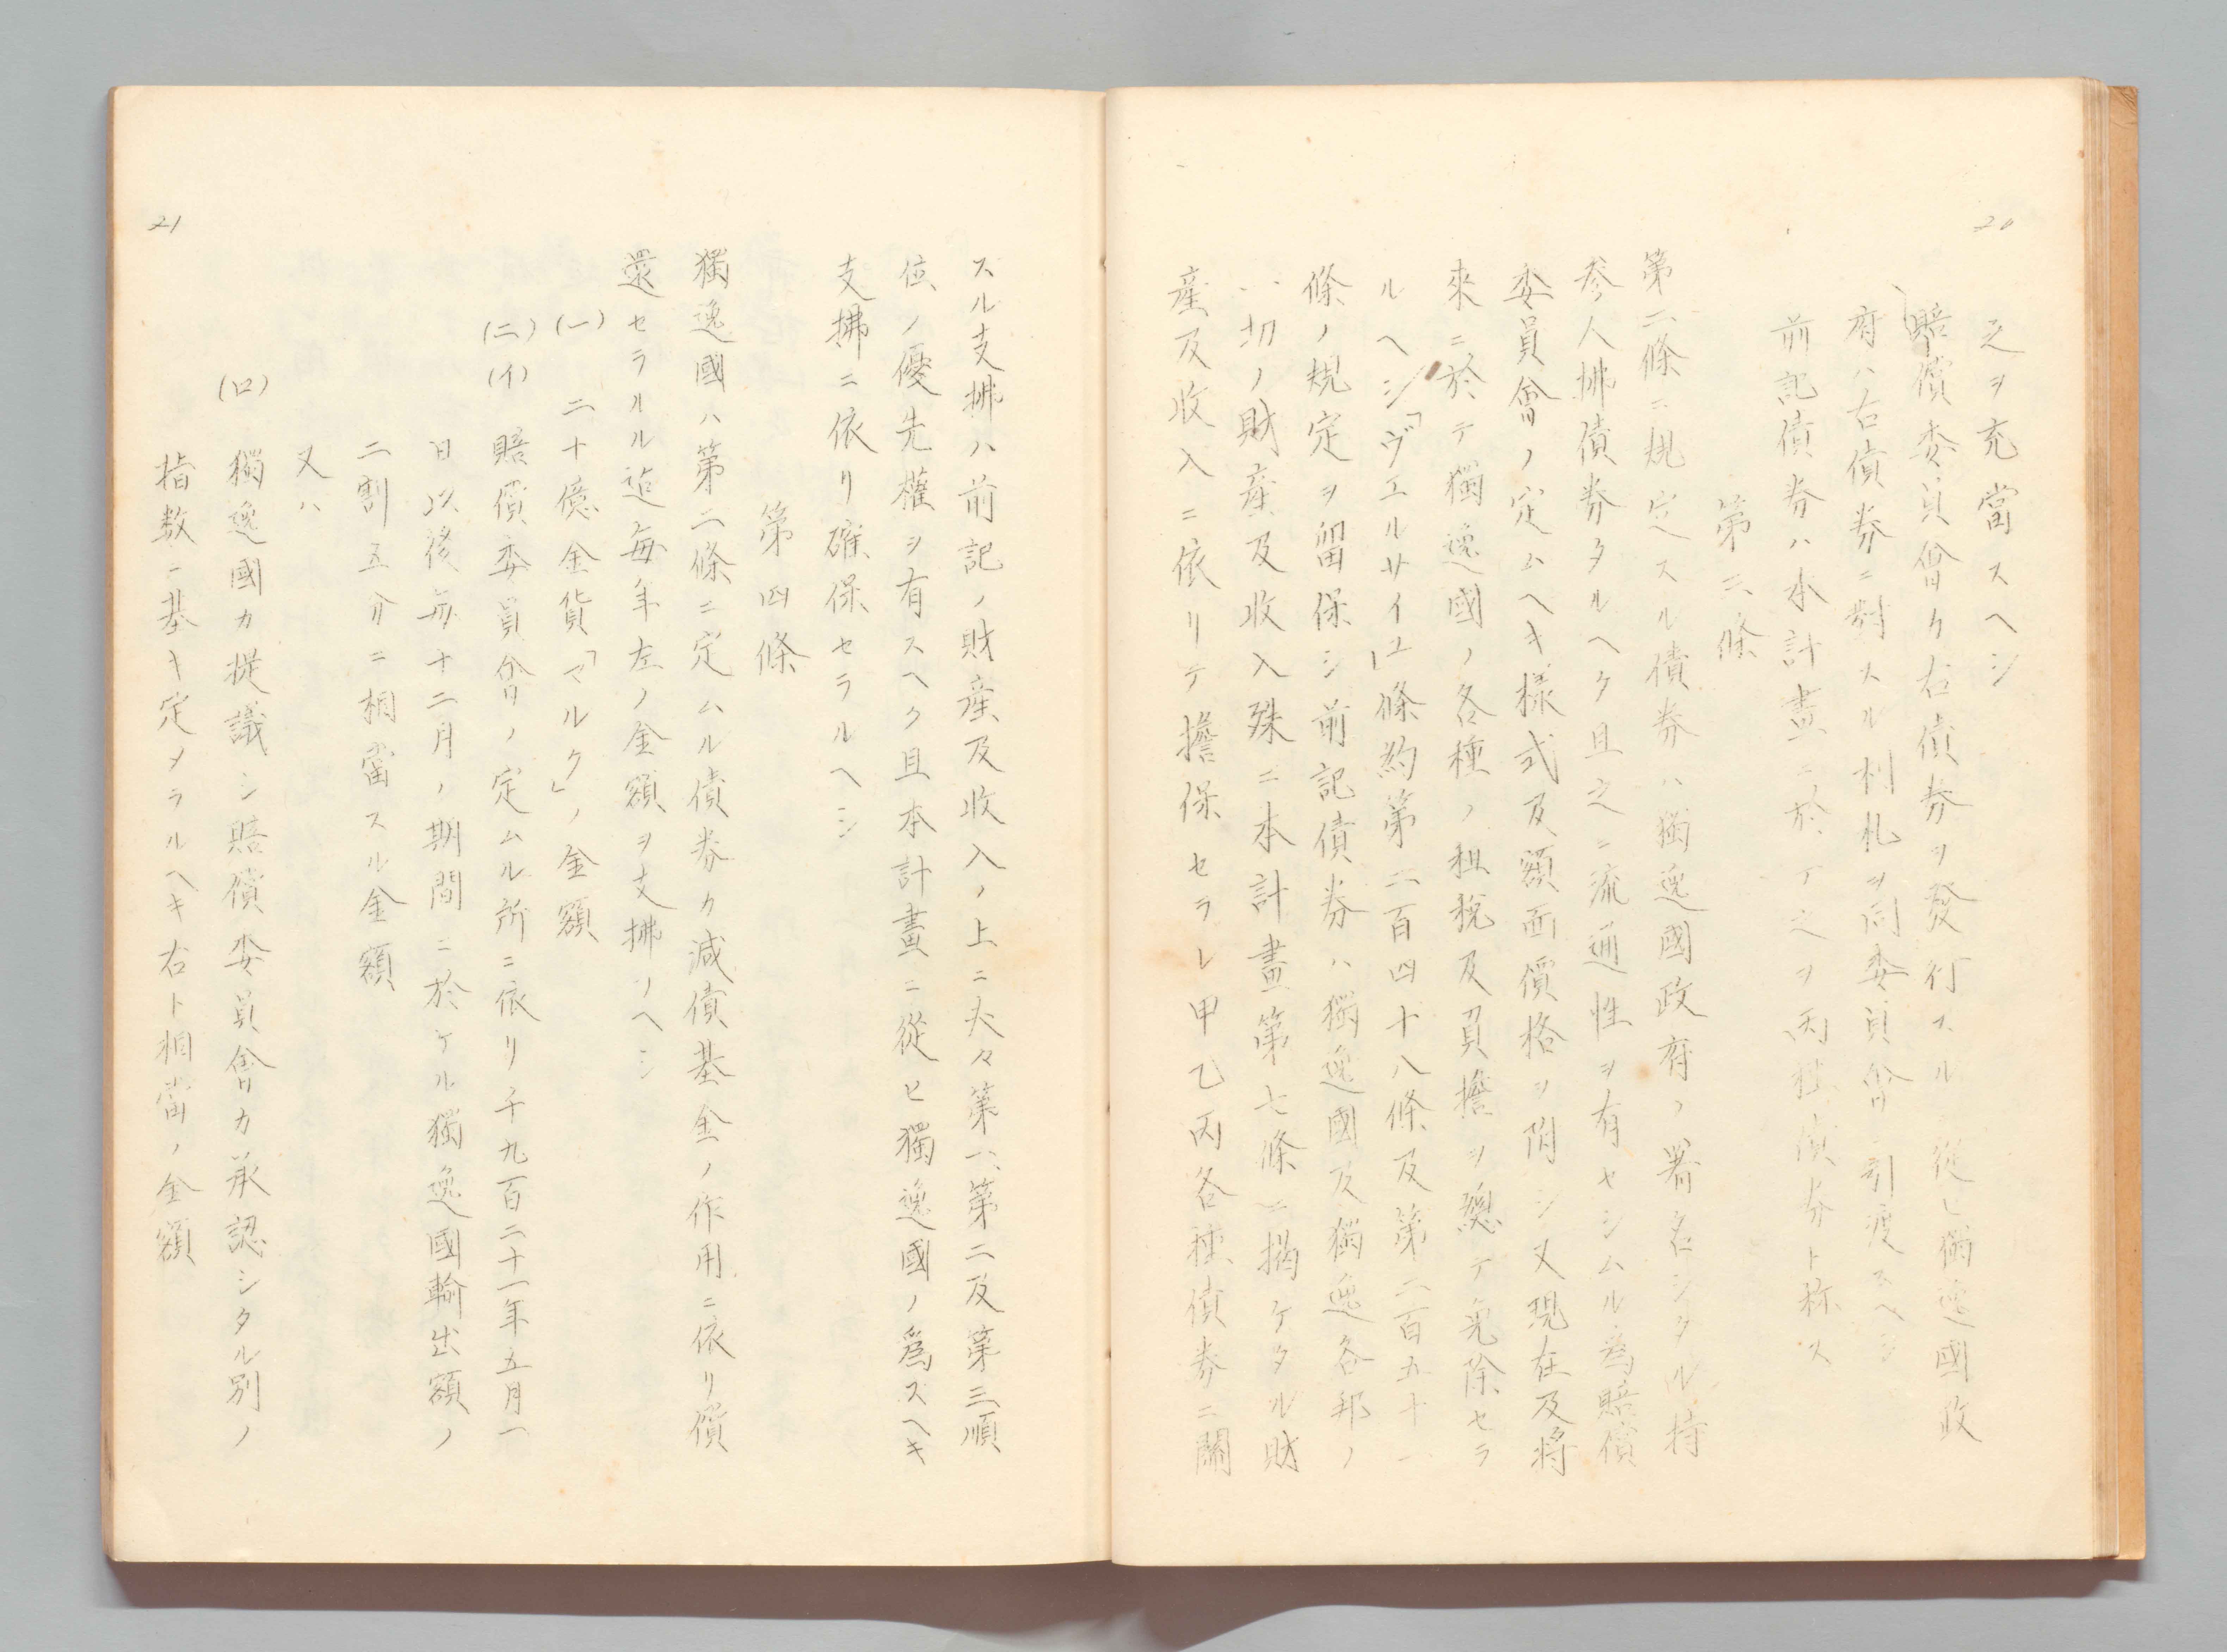 20
之ヲ充當スヘシ
賠償委員會カ右債券ヲ發行スルニ從ヒ獨逸國政
府ハ右債券ニ對スル利札ヲ同委員會ニ引渡スヘシ
前記債券ハ本計畫ニ於テ之ヲ丙種債券ト称ス
第三條
第二條ニ規定スル債券ハ獨逸國政府ノ署名シタル持
参人拂債券タルヘク且之ニ流通性ヲ有セシムル為賠償
委員會ノ定ムヘキ樣式及額面價格ヲ附シ又現在及將
來ニ於テ獨逸國ノ各種ノ租稅及負擔ヲ總テ免除セラ
ルヘシ「ヴェルサイユ」條約第二百四十八條及第二百五十一
條ノ規定ヲ留保シ前記債券ハ獨逸國及獨逸各邦ノ
一切ノ財産及收入殊ニ本計畫第七條ニ揭ケタル財
産及收入ニ依リテ擔保セラレ甲乙丙各種債券ニ關
スル支拂ハ前記ノ財産及收入ノ上ニ夫々第一、第二及第三順
位ノ優先權ヲ有スヘク且本計畫ニ從ヒ獨逸國ノ爲スヘキ
支拂ニ依リ確保セラルヘシ
第四條
獨逸國ハ第二條ニ定ムル債券カ減債基金ノ作用ニ依リ償
還セラルル迄每年左ノ金額ヲ支拂フヘシ
(一) 二十億金貨「マルク」ノ金額
(二)(イ) 賠償委員會ノ定ムル所ニ依リ千九百二十一年五月一
日以後每十二月ノ期間ニ於ケル獨逸國輸出額ノ
二割五分ニ相當スル金額
又ハ
(ロ) 獨逸國カ提議シ賠償委員會カ承認シタル別ノ
指数ニ基キ定メラルヘキ右ト相當ノ金額
21